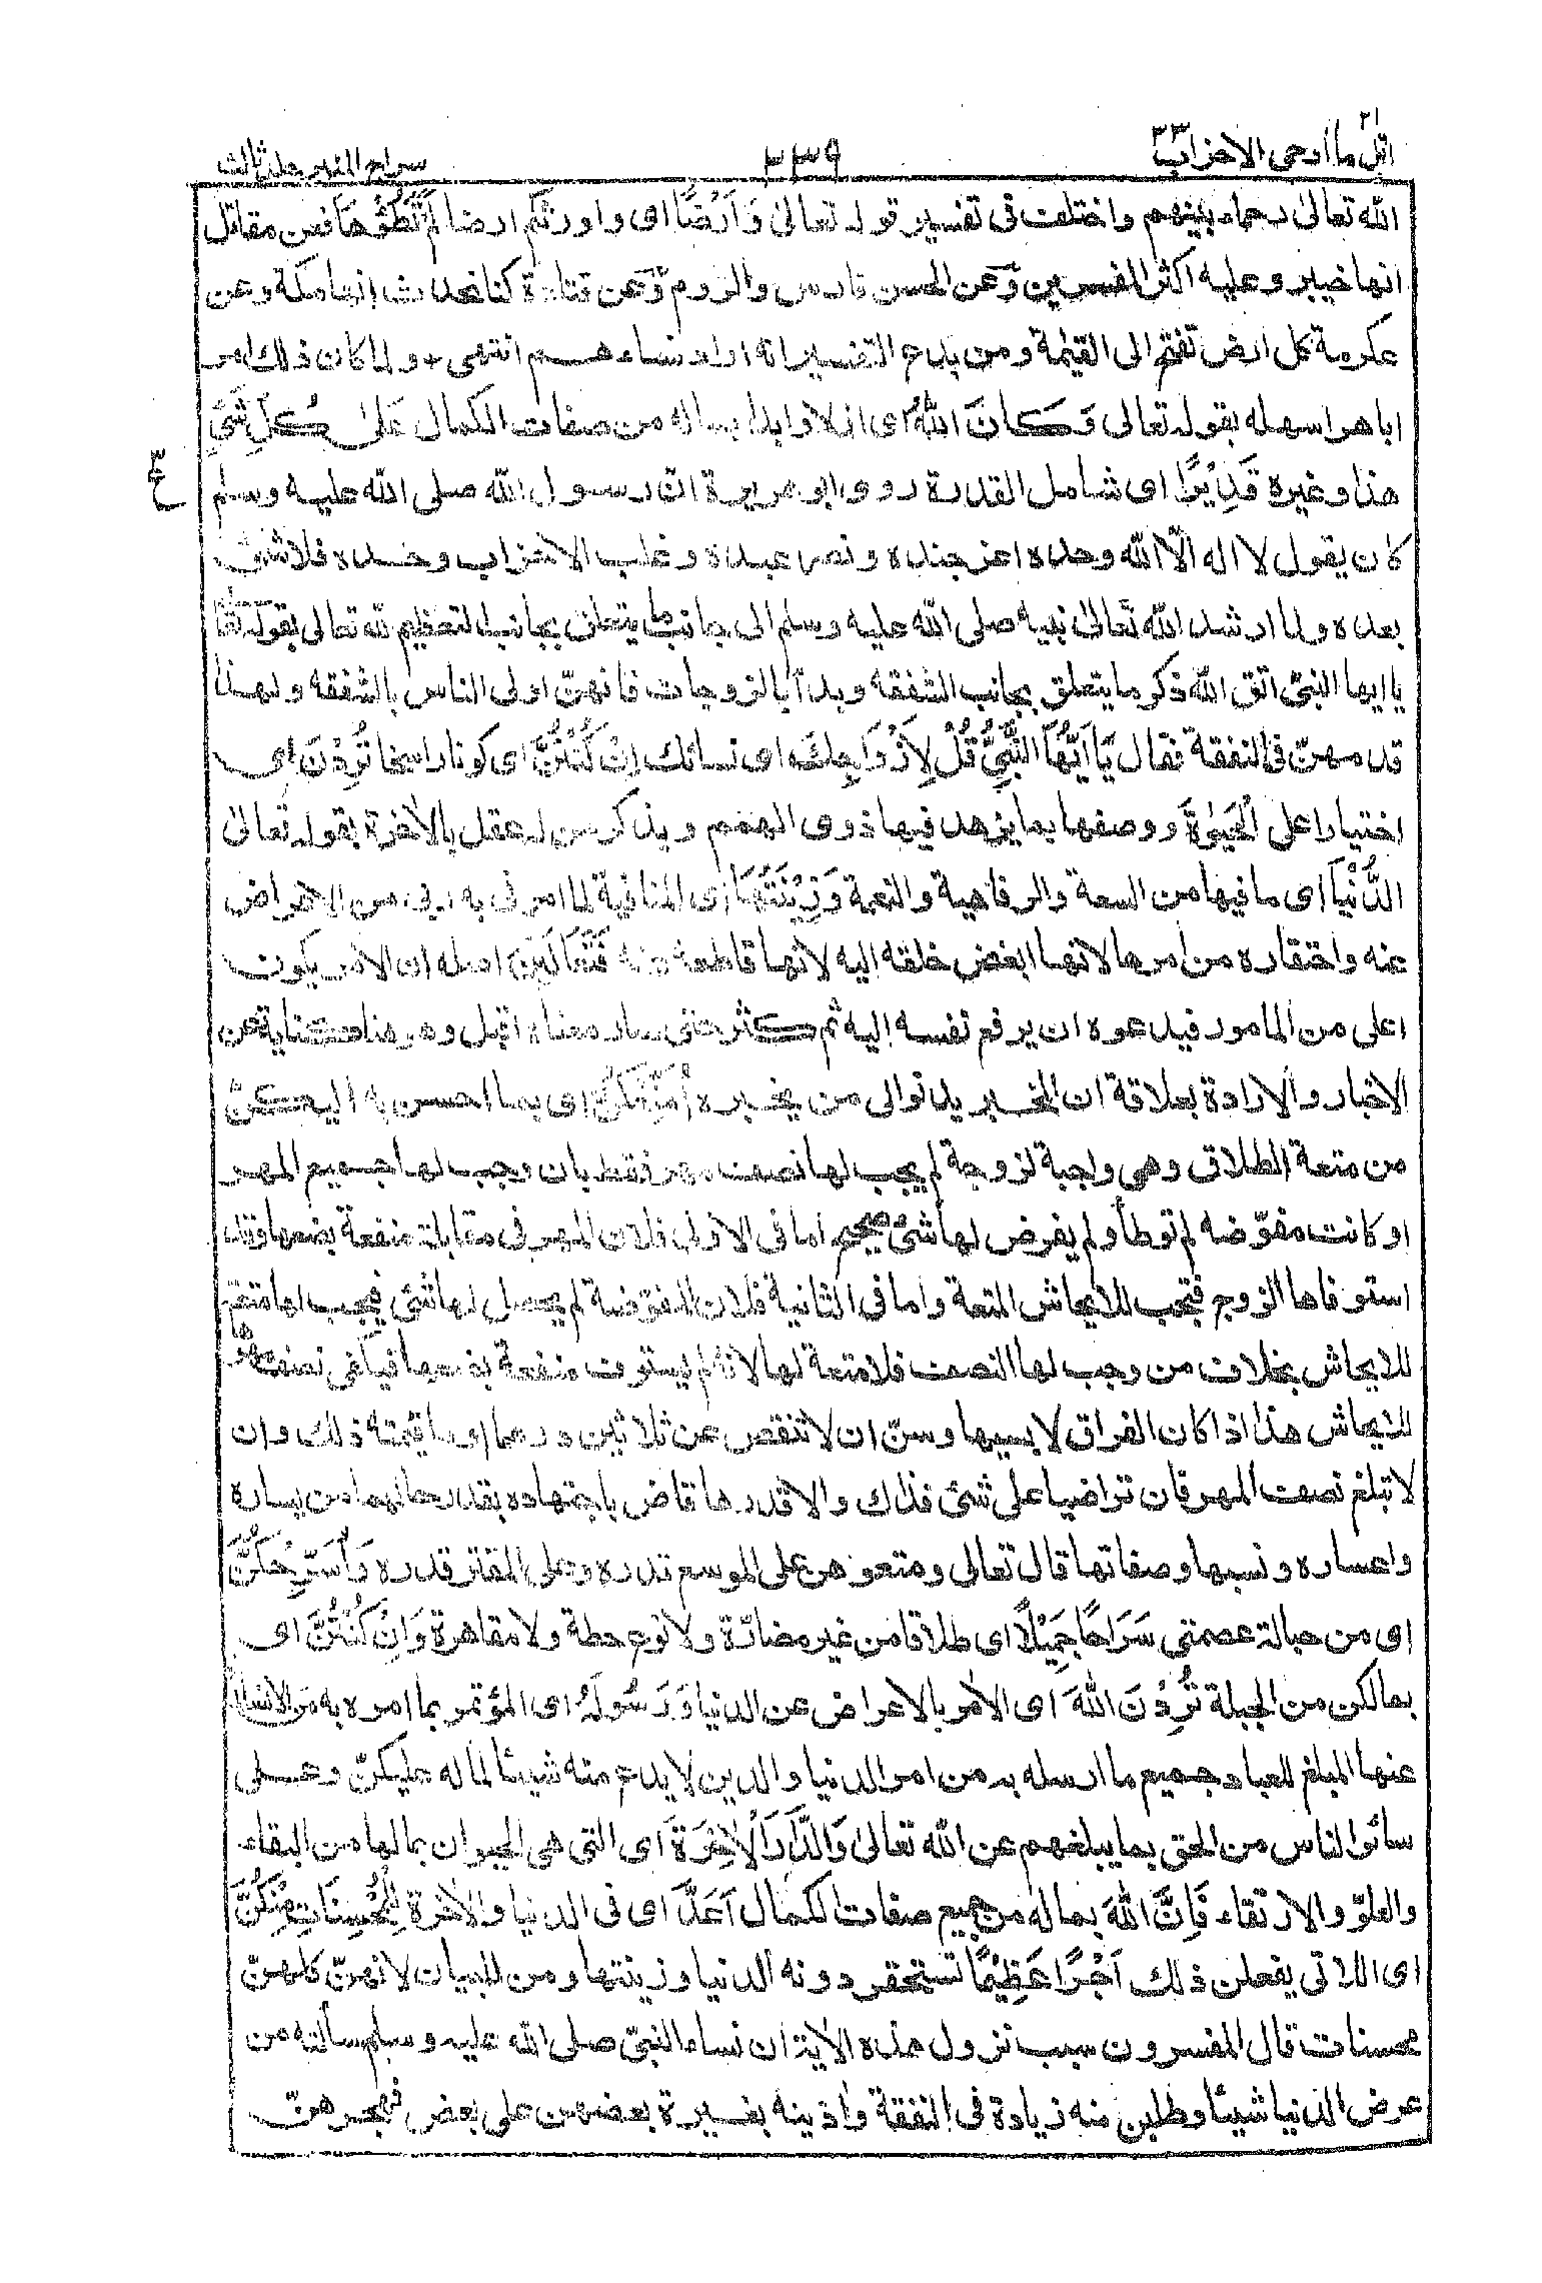 اتل ما اوحی ٢١ الاحزاب ٣٣
٢٣٩
سراج المنیر جلد ثالث
الله تعالیٰ رحماء بینهم واختلف فی تفسیر قوله تعالیٰ وَاَرْضًا ای واورثکم ارضا لَّمْ تَطَئُوْهَا فعن مقاتل
انها خیبر وعلیه اکثر المفسرین وَعن الحسن فارس والروم وَعن قتادة کنا نحدث انها مکة وعن
عکرمة کل ارض تفتح الی القیٰمة ومن بدع التفسیر انه اراد نساءهم انتهی ولما کان ذلك امر
اباهرا سهله بقوله تعالی وَكَانَ اللّٰهُ ای ازلا وابدا بماله من صفات الکمال عَلٰی كُلِّ شَیْءٍ
هذا وغیره قَدِیْرًا ای شامل القدرة روی ابو هریرة ان رسول الله صلی الله علیه وسلم
کان یقول لا اله الّا الله وحده اعز جنده ونصر عبده وغلب الاحزاب وحده فلا شئ
بعده ولما ارشد الله تعالیٰ نبیه صلی الله علیه وسلم الی جانب ما یتعلق بجانب التعظیم لله تعالی بقوله تعالیٰ
یا ایها النبیّ اتق الله ذکر ما یتعلق بجانب الشفقه وبدأ بالزوجات فانهنّ اولی الناس بالشفقه ولهذا
قدمهنّ فی النفقة فقال یٰٓاَیُّهَا النَّبِیُّ قُلْ لِاَزْوَاجِكَ ای نسائك اِنْ كُنْتُنَّ ای کونا راسخا تُرِدْنَ ای
اختیارا علی الْحَیٰوةَ ووصفها بما یزهد فیها ذوی الهمم ویذکر من له عقل بالاٰخرة بقوله تعالیٰ
الدُّنْیَا ای ما فیها من السعة والرفاهیة والنعمة وَزِیْنَتَهَا ای المنافیة لما امرنی به ربی من الاعراض
عنه واحتقاره من امرها لانها ابغض خلقه الیه لانها قاطعة عنه فَتَعَالَیْنَ اصله ان الاٰمر یکون
اعلی من المامور فیدعوه ان یرفع نفسه الیه ثم کثر حتی صار معناه اقبل وهو هنا کنایة عن
الاخبار والارادة بعلاقة ان المخبر یدنو الی من یخبره اُمَتِّعْكُنَّ ای بما احسن به الیکنّ
من متعة الطلاق وهی واجبة لزوجة لم یجب لها نصف مهر فقط بان وجب لها جمیع المهر
او کانت مفوّضه لم توطأ ولم یفرض لها شئ صحیح اما فی الاولی فلان المهر فی مقابلة منفعة بضعها وقد
استوفاها الزوج فتجب للایحاش المتعة واما فی الثانیة فلان المفوّضة لم یحصل لها شئ فیجب لها متعة
للایحاش بخلاف من وجب لها النصف فلا متعة لها لانه لم یستوف منفعة بضعها فیکفی نصف مهرها
للایحاش هذا اذا کان الفراق لا بسببها وسنّ ان لا تنقص عن ثلاثین درهما او ما قیمته ذلك وان
لا تبلغ نصف المهر فان تراضیا علی شئ فذاك والا قدرها قاض باجتهاده بقدر حالهما من یساره
واعساره ونسبها وصفاتها قال تعالی ومتعوهن علی الموسع قدره وعلی المقتر قدره وَاُسَرِّحْكُنَّ
ای من حبالة عصمتی سَرَاحًا جَمِیْلًا ای طلاقا من غیر مضارّة ولا نوع حطة ولا مقاهرة وَاِنْ كُنْتُنَّ ای
بما لکن من الجبلة تُرِدْنَ اللّٰهَ ای الاٰمر بالاعراض عن الدنیا وَرَسُوْلَهٗ ای المؤتمر بما امره به من الانسلاخ
عنها المبلغ للعباد جمیع ما ارسله به من امر الدنیا والدین لا یدع منه شیئا لما له علیکنّ وعلی
سائر الناس من الحق بما یبلغهم عن الله تعالیٰ وَالدَّارَ الْاٰخِرَةَ ای التی هی الحیوان بما لها من البقاء
والعلوّ والارتقاء فَاِنَّ اللّٰهَ بما له من جمیع صفات الکمال اَعَدَّ ای فی الدنیا والاٰخرة لِلْمُحْسِنَاتِ مِنْكُنَّ
ای اللاتی یفعلن ذلك اَجْرًا عَظِیْمًا تستحقر دونه الدنیا وزینتها ومن للبیان لانهنّ کلهنّ
محسنات قال المفسرون سبب نزول هذه الاٰیة ان نساء النبیّ صلی الله علیه وسلم سألنه من
عرض الدنیا شیئا وطلبن منه زیادة فی النفقة واذینه بغیرة بعضهن علی بعض فهجرهنّ
ع